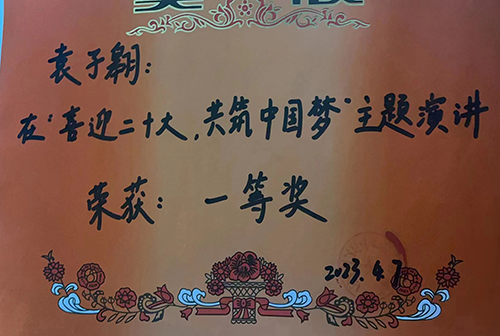 袁子翱：
在"喜迎二十大，共筑中国梦"主题演讲
荣获：一等奖
2023.4.7